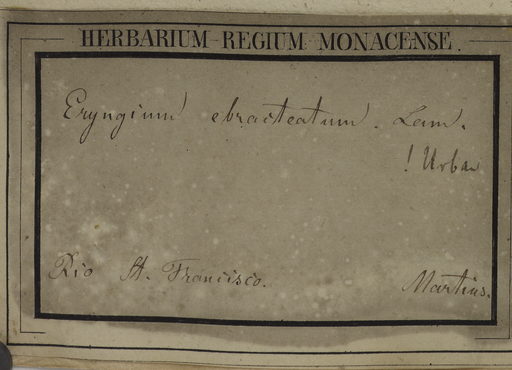 HERBARIUM REGIUM MONACENSE.
Eryngium ebracteatum. Lam.
! Urban
Rio St. Francisco. Martius.